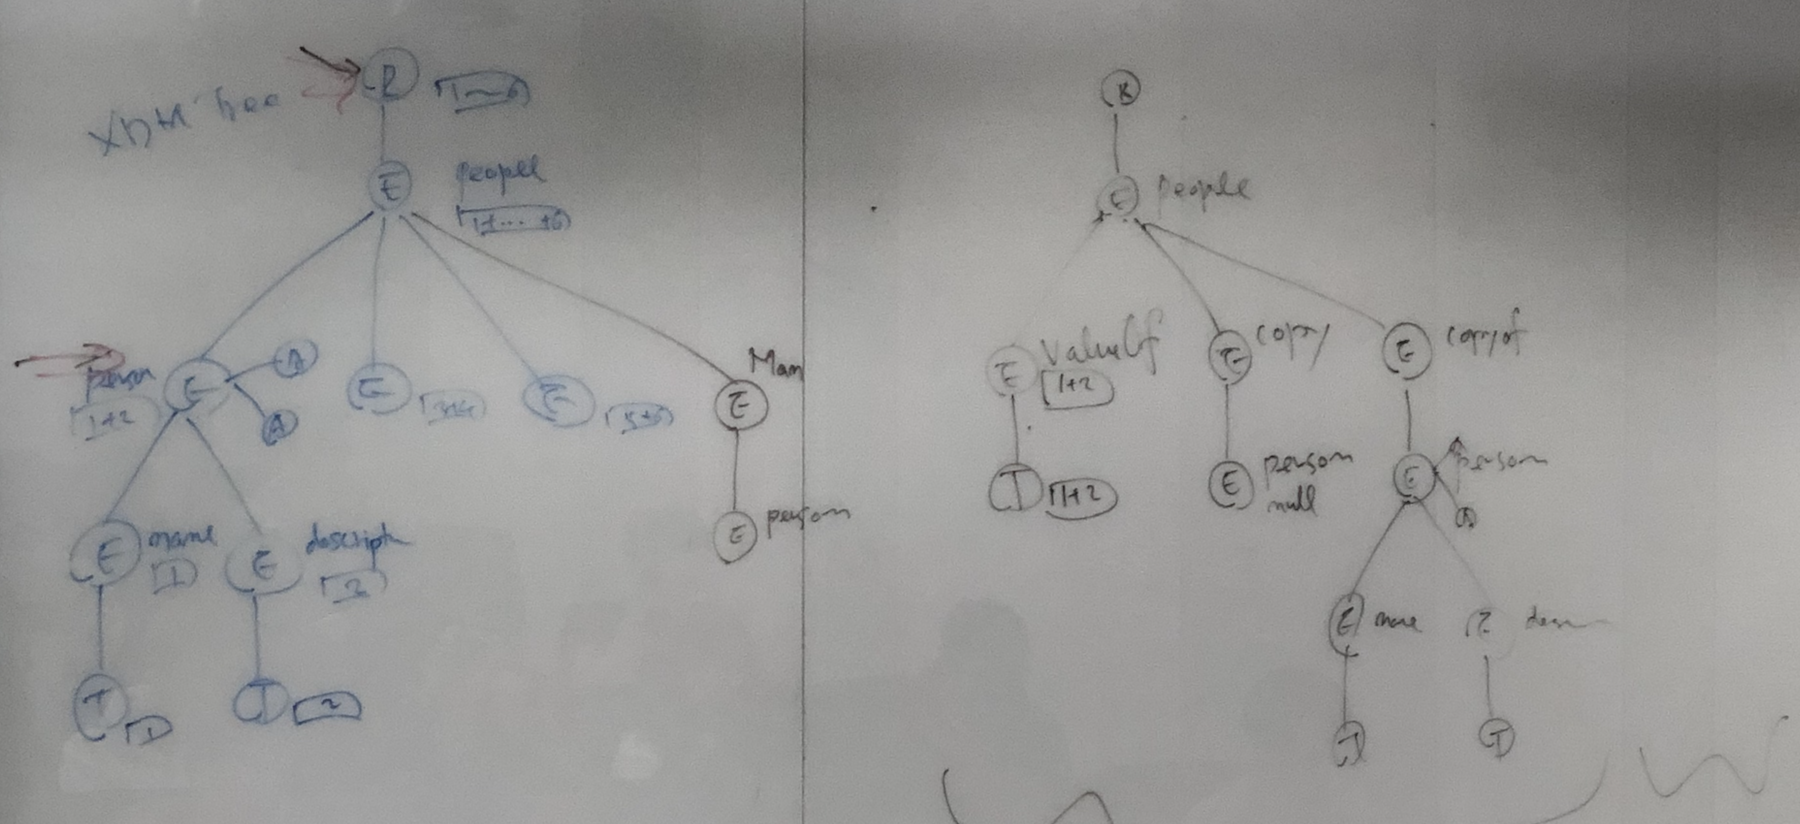 XDM tree
R
1~6
E
people
1+... +6
person
1+2
E
A
A
E
3+4
E
5+6
Man
E
E
person
E
name
1
E
2
T
1
T
2
R
E
people
E
ValueOf
1+2
T
1+2
E
copy
E
person
null
E
copyof
E
person
A
A
E
E
T
T